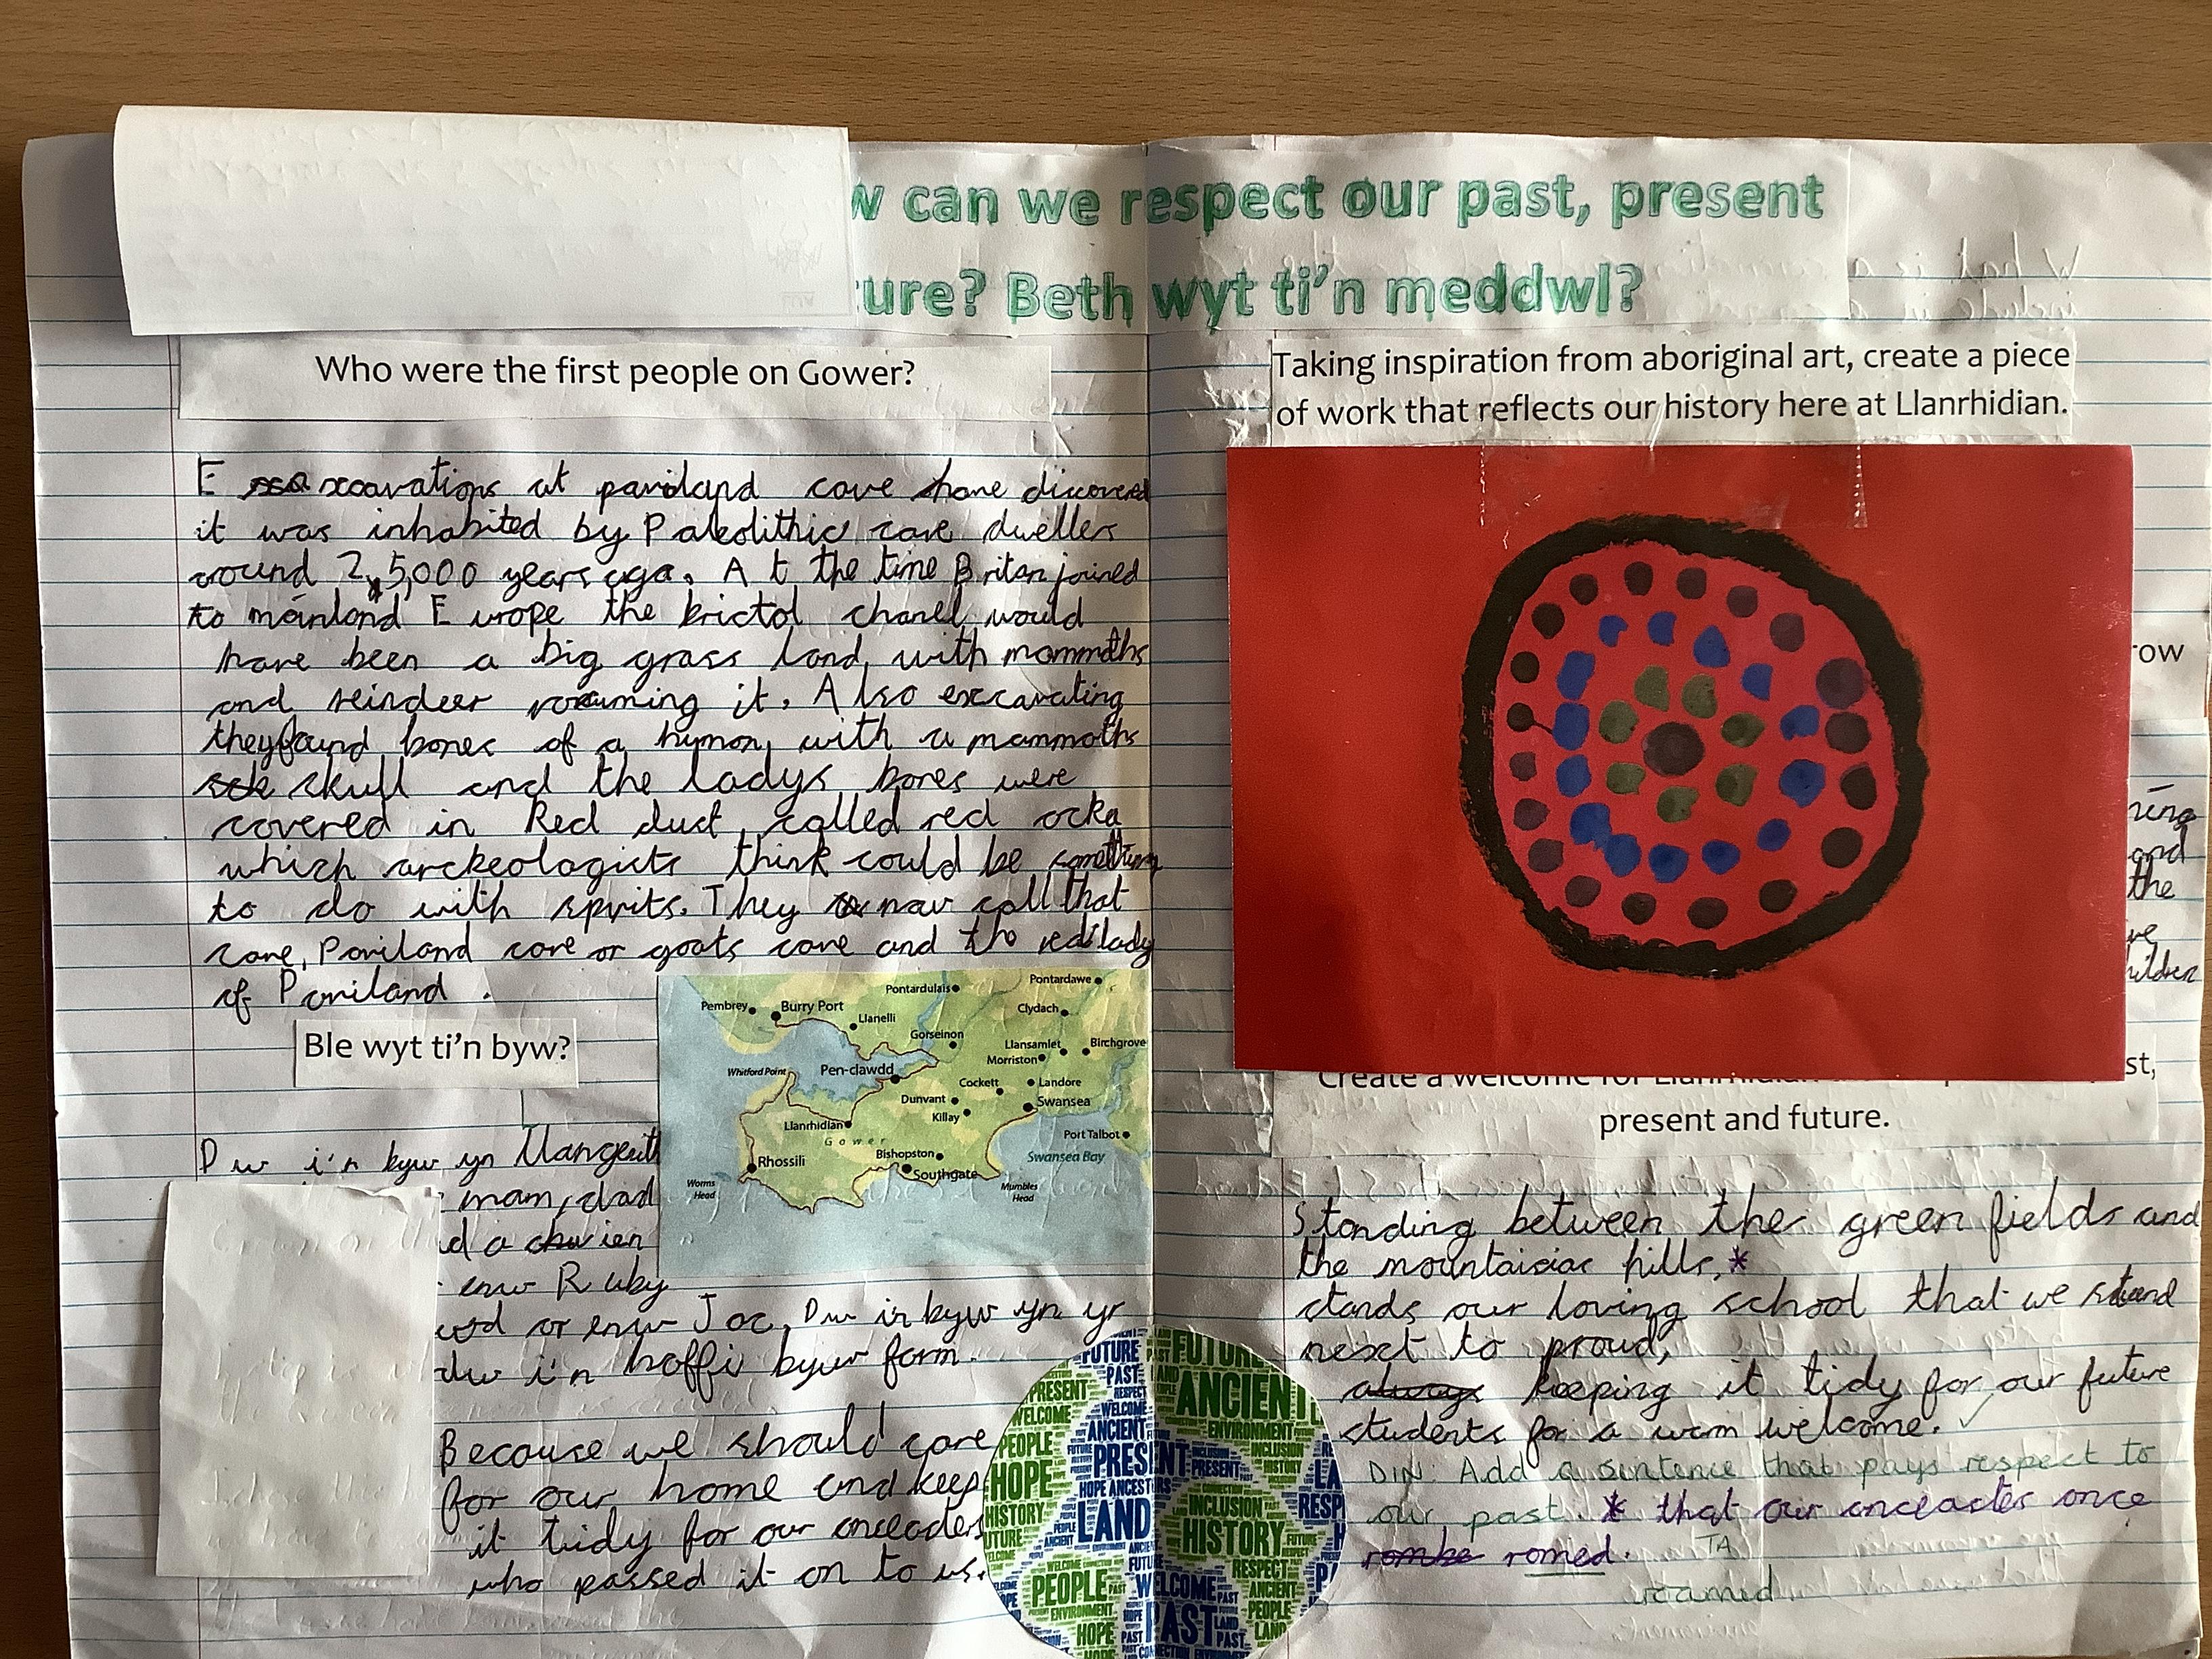 w can we respect our past, present
ture? Beth wyt ti'n meddwl?
Who were the first people on Gower?
E xcavations at paviland cave have discovered
it was inhabited by Paleolithic cave dwellers
around 2,5,000 years ago. A t the time Britan joined
to mainland E urope the bristol chanel would
have been a big grass land, with mammoths
and reindeer roaming it. Also excavating
they found bones of a human, with a mammoths
skull and the ladys bones were
covered in Red dust, called red ocka
which arckeologists think could be something
to do with sprits. They now call that
cave, Paviland cave or goats cave and the red lady
of Paviland.
Ble wyt ti'n byw?
Dw i'n byw yn
mam, dad
d a
enw Ruby
enw Joc. Dw i'n byw yn yr
dw i'n hoffi byw farm.
Because we should care
for our home and keep
it tidy for our anceaters
who passed it on to us.
Pontardawe
Pontardulais
Pembrey
Burry Port
Llanelli
Clydach
Gorseinon
Llansamlet
Birchgrove
Morriston
Whitford Point
Pen-clawdd
Cockett
Landore
Dunvant
Swansea
Killay
Llanrhidian
Gower
Port Talbot
Bishopston
Swansea Bay
Rhossili
Southgate
Worms
Head
Mumbles
Head
Taking inspiration from aboriginal art, create a piece
of work that reflects our history here at Llanrhidian.
row
and
the
ve
st,
present and future.
Standing between the green fields and
the hills,*
stands our loving school that we stand
next to proud,
always keeping it tidy for our future
students for a warm welcome. ✓
DIN: Add a sentence that pays respect to
our past. * that our anceaters once
romed.
TA
roamed
FUTURE
PAST
ANCIENT
PRESENT
WELCOME
PEOPLE
HOPE
HISTORY
LAND
INCLUSION
ENVIRONMENT
RESPECT